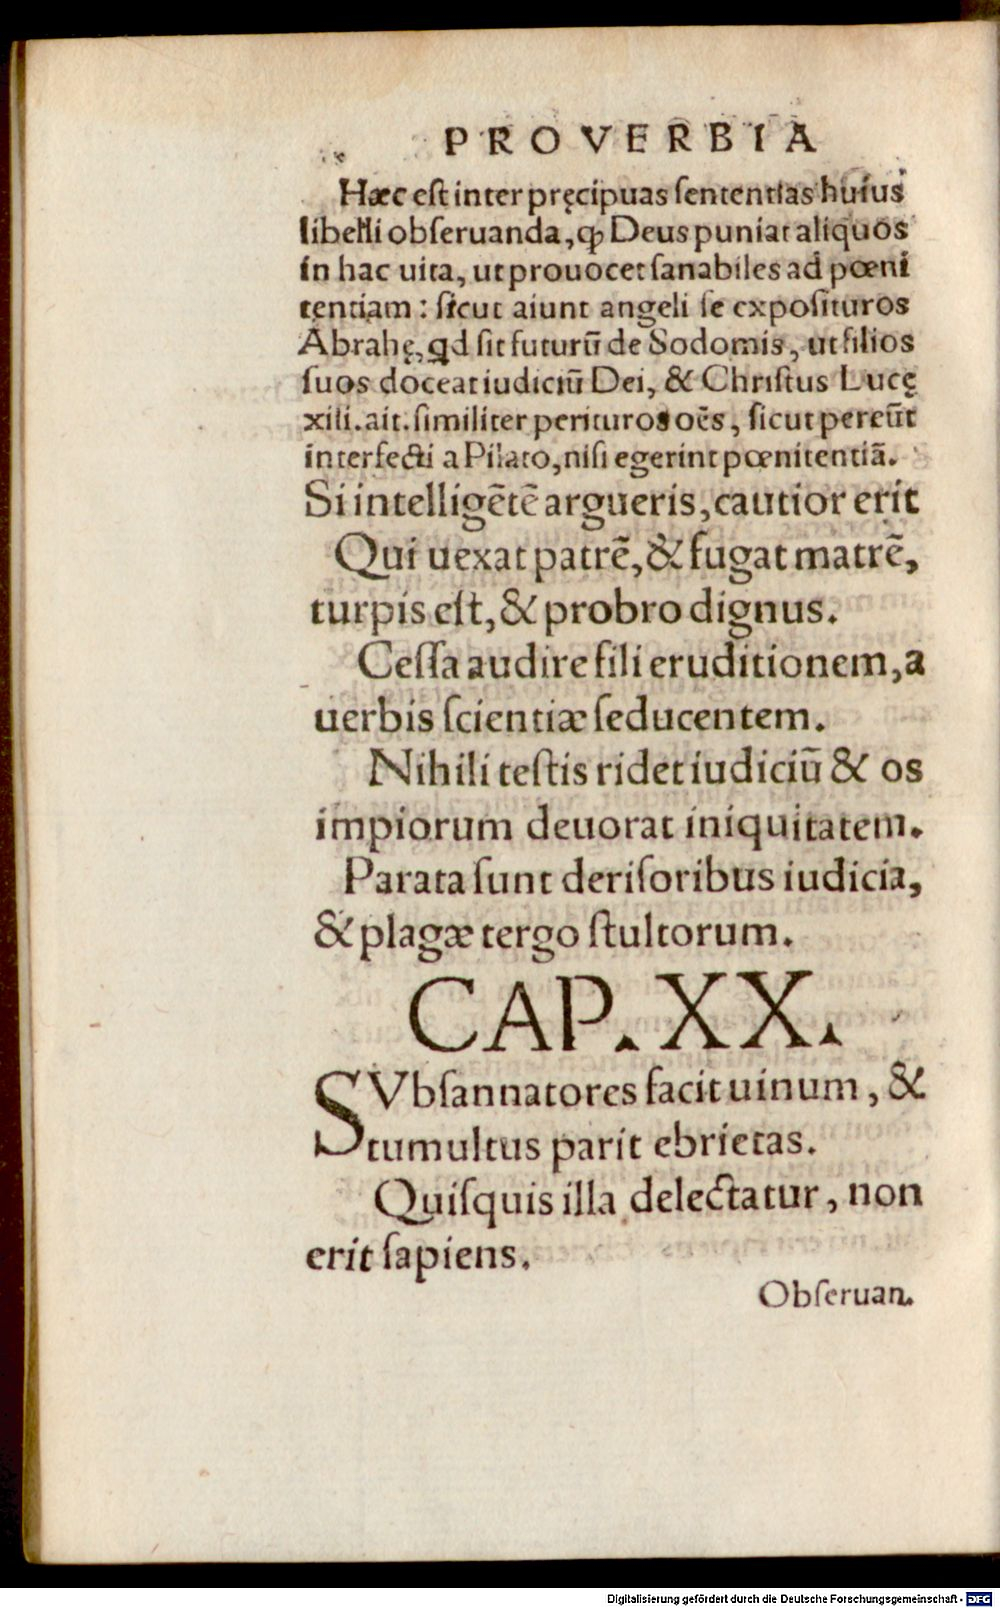 PROVERBIA
Hæc eſt inter pręcipuas ſententias huius
libelli obſeruanda, ꝙ Deus puniat aliquos
in hac uita, ut prouocet ſanabiles ad pœni
tentiam: ſicut aiunt angeli ſe expoſituros
Abrahę, qd ſit futurũ de Sodomis, ut filios
ſuos doceat iudiciũ Dei, & Chriſtus Lucę
xiii. ait. ſimiliter perituros oẽs, ſicut pereũt
interfecti a Pilato, niſi egerint pœnitentiã.
Si intelligẽtẽ argueris, cautior erit
Qui uexat patrẽ, & fugat matrẽ,
turpis eſt, & probro dignus.
Ceſſa audire fili eruditionem, a
uerbis ſcientiæ ſeducentem.
Nihili teſtis ridet iudiciũ & os
impiorum deuorat iniquitatem.
Parata ſunt deriſoribus iudicia,
& plagæ tergo ſtultorum.
CAP. XX.
SVbſannatores facit uinum, &
tumultus parit ebrietas.
Quiſquis illa delectatur, non
erit ſapiens.
Obſeruan.
Digitalisierung gefördert durch die Deutsche Forschungsgemeinschaft - DFG